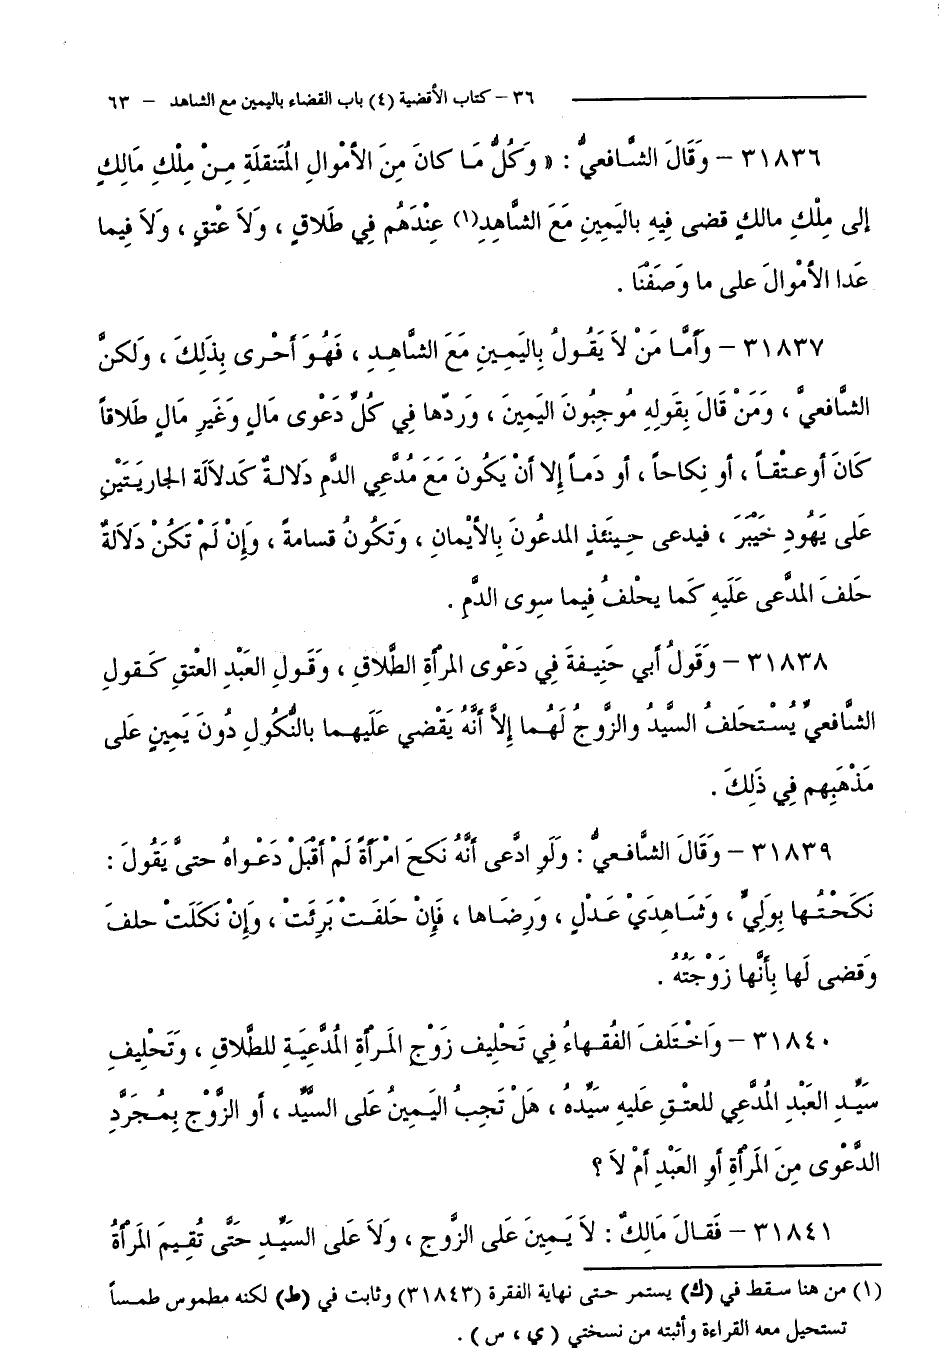 ٣٦ – كتاب الأقضية (٤) باب القضاء باليمين مع الشاهد – ٦٣
٣١٨٣٦ – وَقَالَ الشَّافعيُّ : « وَكُلُّ مَا كانَ مِنَ الأمْوالِ المُتَنقلَةِ مِنْ مِلْكِ مَالِكٍ
إلى مِلْكِ مالكٍ قضى فِيهِ باليَمِينِ مَعَ الشَّاهِدِ(١) عِنْدَهُم فِي طَلَاقٍ ، وَلَا عتْقٍ ، وَلَا فِيما
عَدا الأمْوالَ على ما وَصَفْنَا .
٣١٨٣٧ – وَأمَّا مَنْ لَا يَقُولُ بِاليَمِينِ مَعَ الشَّاهِدِ ، فَهُوَ أحْرى بِذَلِكَ ، وَلَكنَّ
الشَّافعيَّ ، وَمَنْ قَالَ بِقَولِهِ مُوجبُونَ اليَمِينَ ، وَردّها فِي كُلِّ دَعْوى مَالٍ وَغَيرِ مَالٍ طَلاقاً
كَانَ أو عتْقاً ، أو نِكاحاً ، أو دَماً إلا أنْ يَكُونَ مَعَ مُدَّعِي الدَّمِ دَلالةٌ كَدلَالَة الجاريَتَيْنِ
عَلى يَهُودِ خَيْبَرَ ، فيدعى حِينَئذٍ المدعُونَ بِالأيْمانِ ، وَتَكُونُ قسامةً ، وَإنْ لَمْ تَكنْ دَلَالةٌ
حَلفَ المدَّعى عَلَيهِ كَما يحْلفُ فِيما سِوى الدَّمِ .
٣١٨٣٨ – وَقَولُ أبي حَنِيفةَ فِي دَعْوى المرْأةِ الطَّلاقِ ، وَقَولِ العَبْدِ العتقِ كَقولِ
الشَّافعيِّ يُسْتحلفُ السيَّدُ والزَّوجُ لَهُما إلاَّ أنَّهُ يَقْضي عَلَيهِما بالنُّكُولِ دُونَ يَمِينٍ عَلى
مَذْهَبِهِم فِي ذَلِكَ .
٣١٨٣٩ – وَقَالَ الشَّافعيُّ : وَلَو ادَّعى أنَّهُ نَكحَ امْرَأةً لَمْ أقْبَلْ دَعْواهُ حتىَّ يَقُولَ :
نَكَحْتُها بِوَلِيٍّ ، وَشَاهِدَيْ عَدْلٍ ، وَرِضَاها ، فَإنْ حَلفَتْ بَرئَتْ ، وَإنْ نكَلَتْ حلفَ
وَقضى لَها بِأنَّها زَوْجَتُهُ .
٣١٨٤٠ – وَاخْتَلفَ الفُقهاءُ فِي تَحْلِيف زَوْجِ المَرأةِ المُدَّعِيَةِ للطَّلاقِ ، وَتَحْلِيفِ
سَيِّدِ العَبْدِ المُدَّعِي للعتْقِ عَليهِ سَيِّدُهُ ، هَلْ تَجبُ اليَمِينُ عَلى السَّيِّدِ ، أو الزَّوْجِ بِمُجَرَّدِ
الدَّعْوى مِنَ المَرْأةِ أوِ العَبْدِ أمْ لَا ؟
٣١٨٤١ – فَقالَ مَالكٌ : لَا يَمِينَ عَلى الزَّوجِ ، وَلَا عَلى السَيِّدِ حَتَّى تُقِيمَ المَرْأةُ
(١) من هنا سقط في (ك) يستمر حتى نهاية الفقرة (٣١٨٤٣) وثابت في (ط) لكنه مطموس طمساً
تستحيل معه القراءة وأثبته من نسختي ( ي ، س ) .